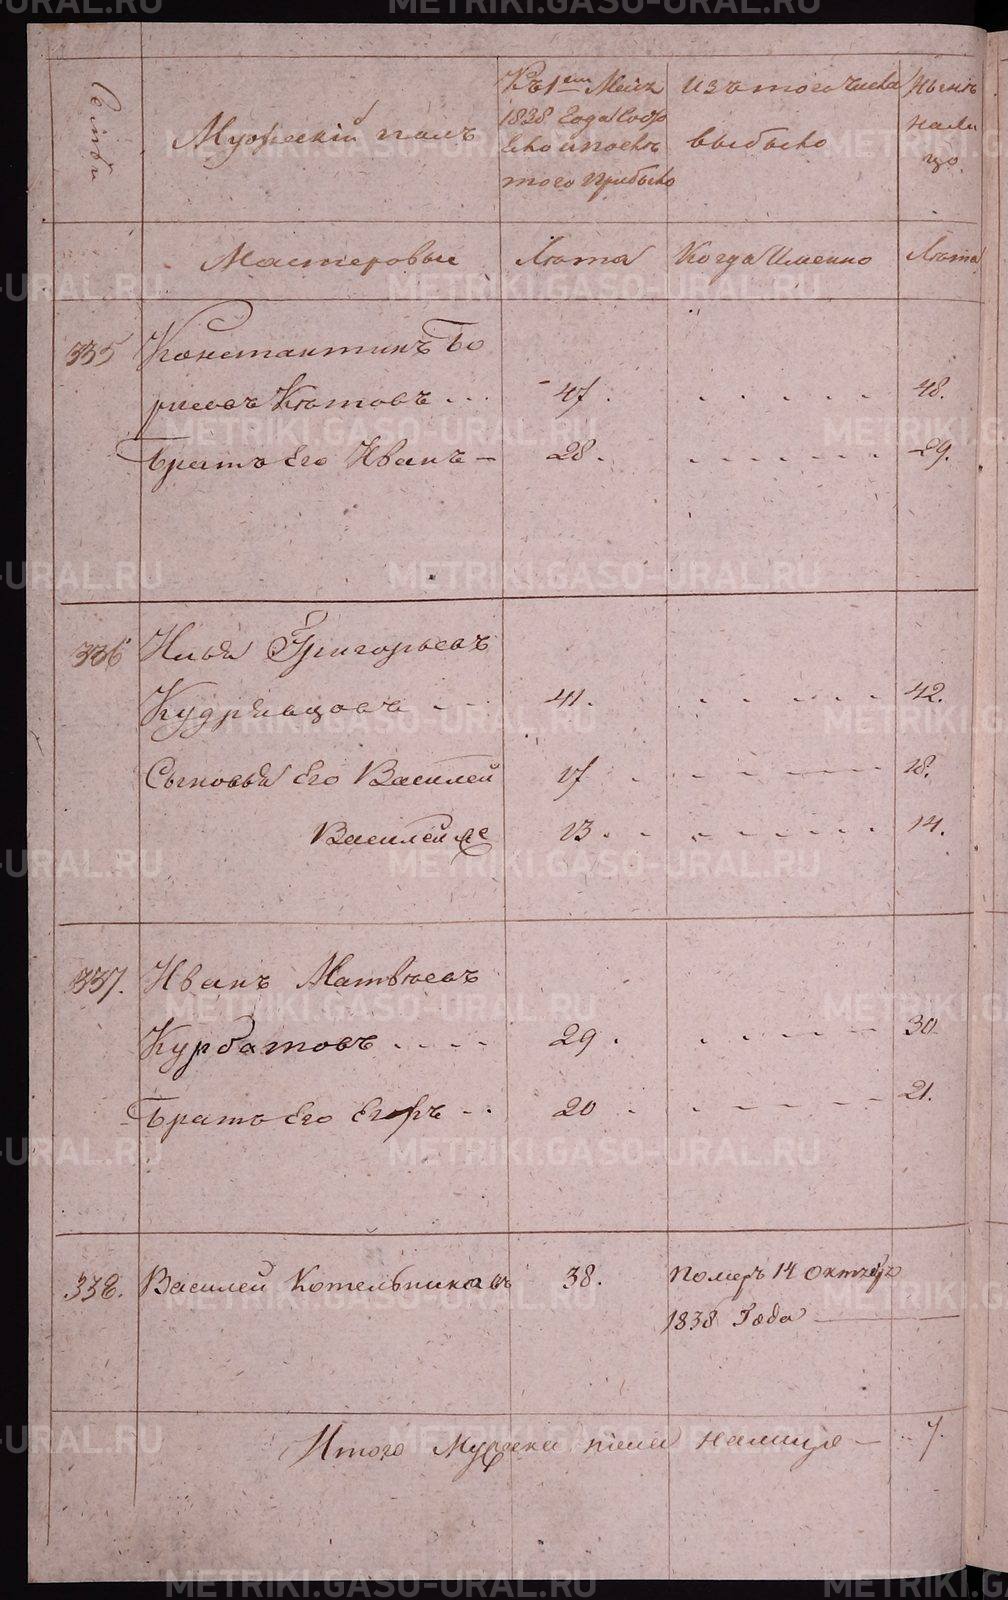 METRIKI.GASO-URAL.RU
Семьи
Мужескiй полъ
Къ 1 Маiя
1838 Года Состо
яло и после
того Прибыло
Изъ того Числа
выбыло
Ныне
нали
цо
Мастеровые
Лета
Когда Именно
Лета
335
Константинъ Бо
рисовъ Кютовъ
47.
48.
Братъ Его Иванъ
28.
29.
336
Илья Григорьевъ
Кудрявцовъ
41.
42.
Сыновья Его Василей
17
18.
Василей же
13.
14.
337.
Иванъ Матвеевъ
Курбатовъ
29.
30
Братъ Его Егоръ
20
21.
338.
Василей Котельниковъ
38.
Померъ 14 октября
1838 Года
Итого Мужеска пола налицо
7.